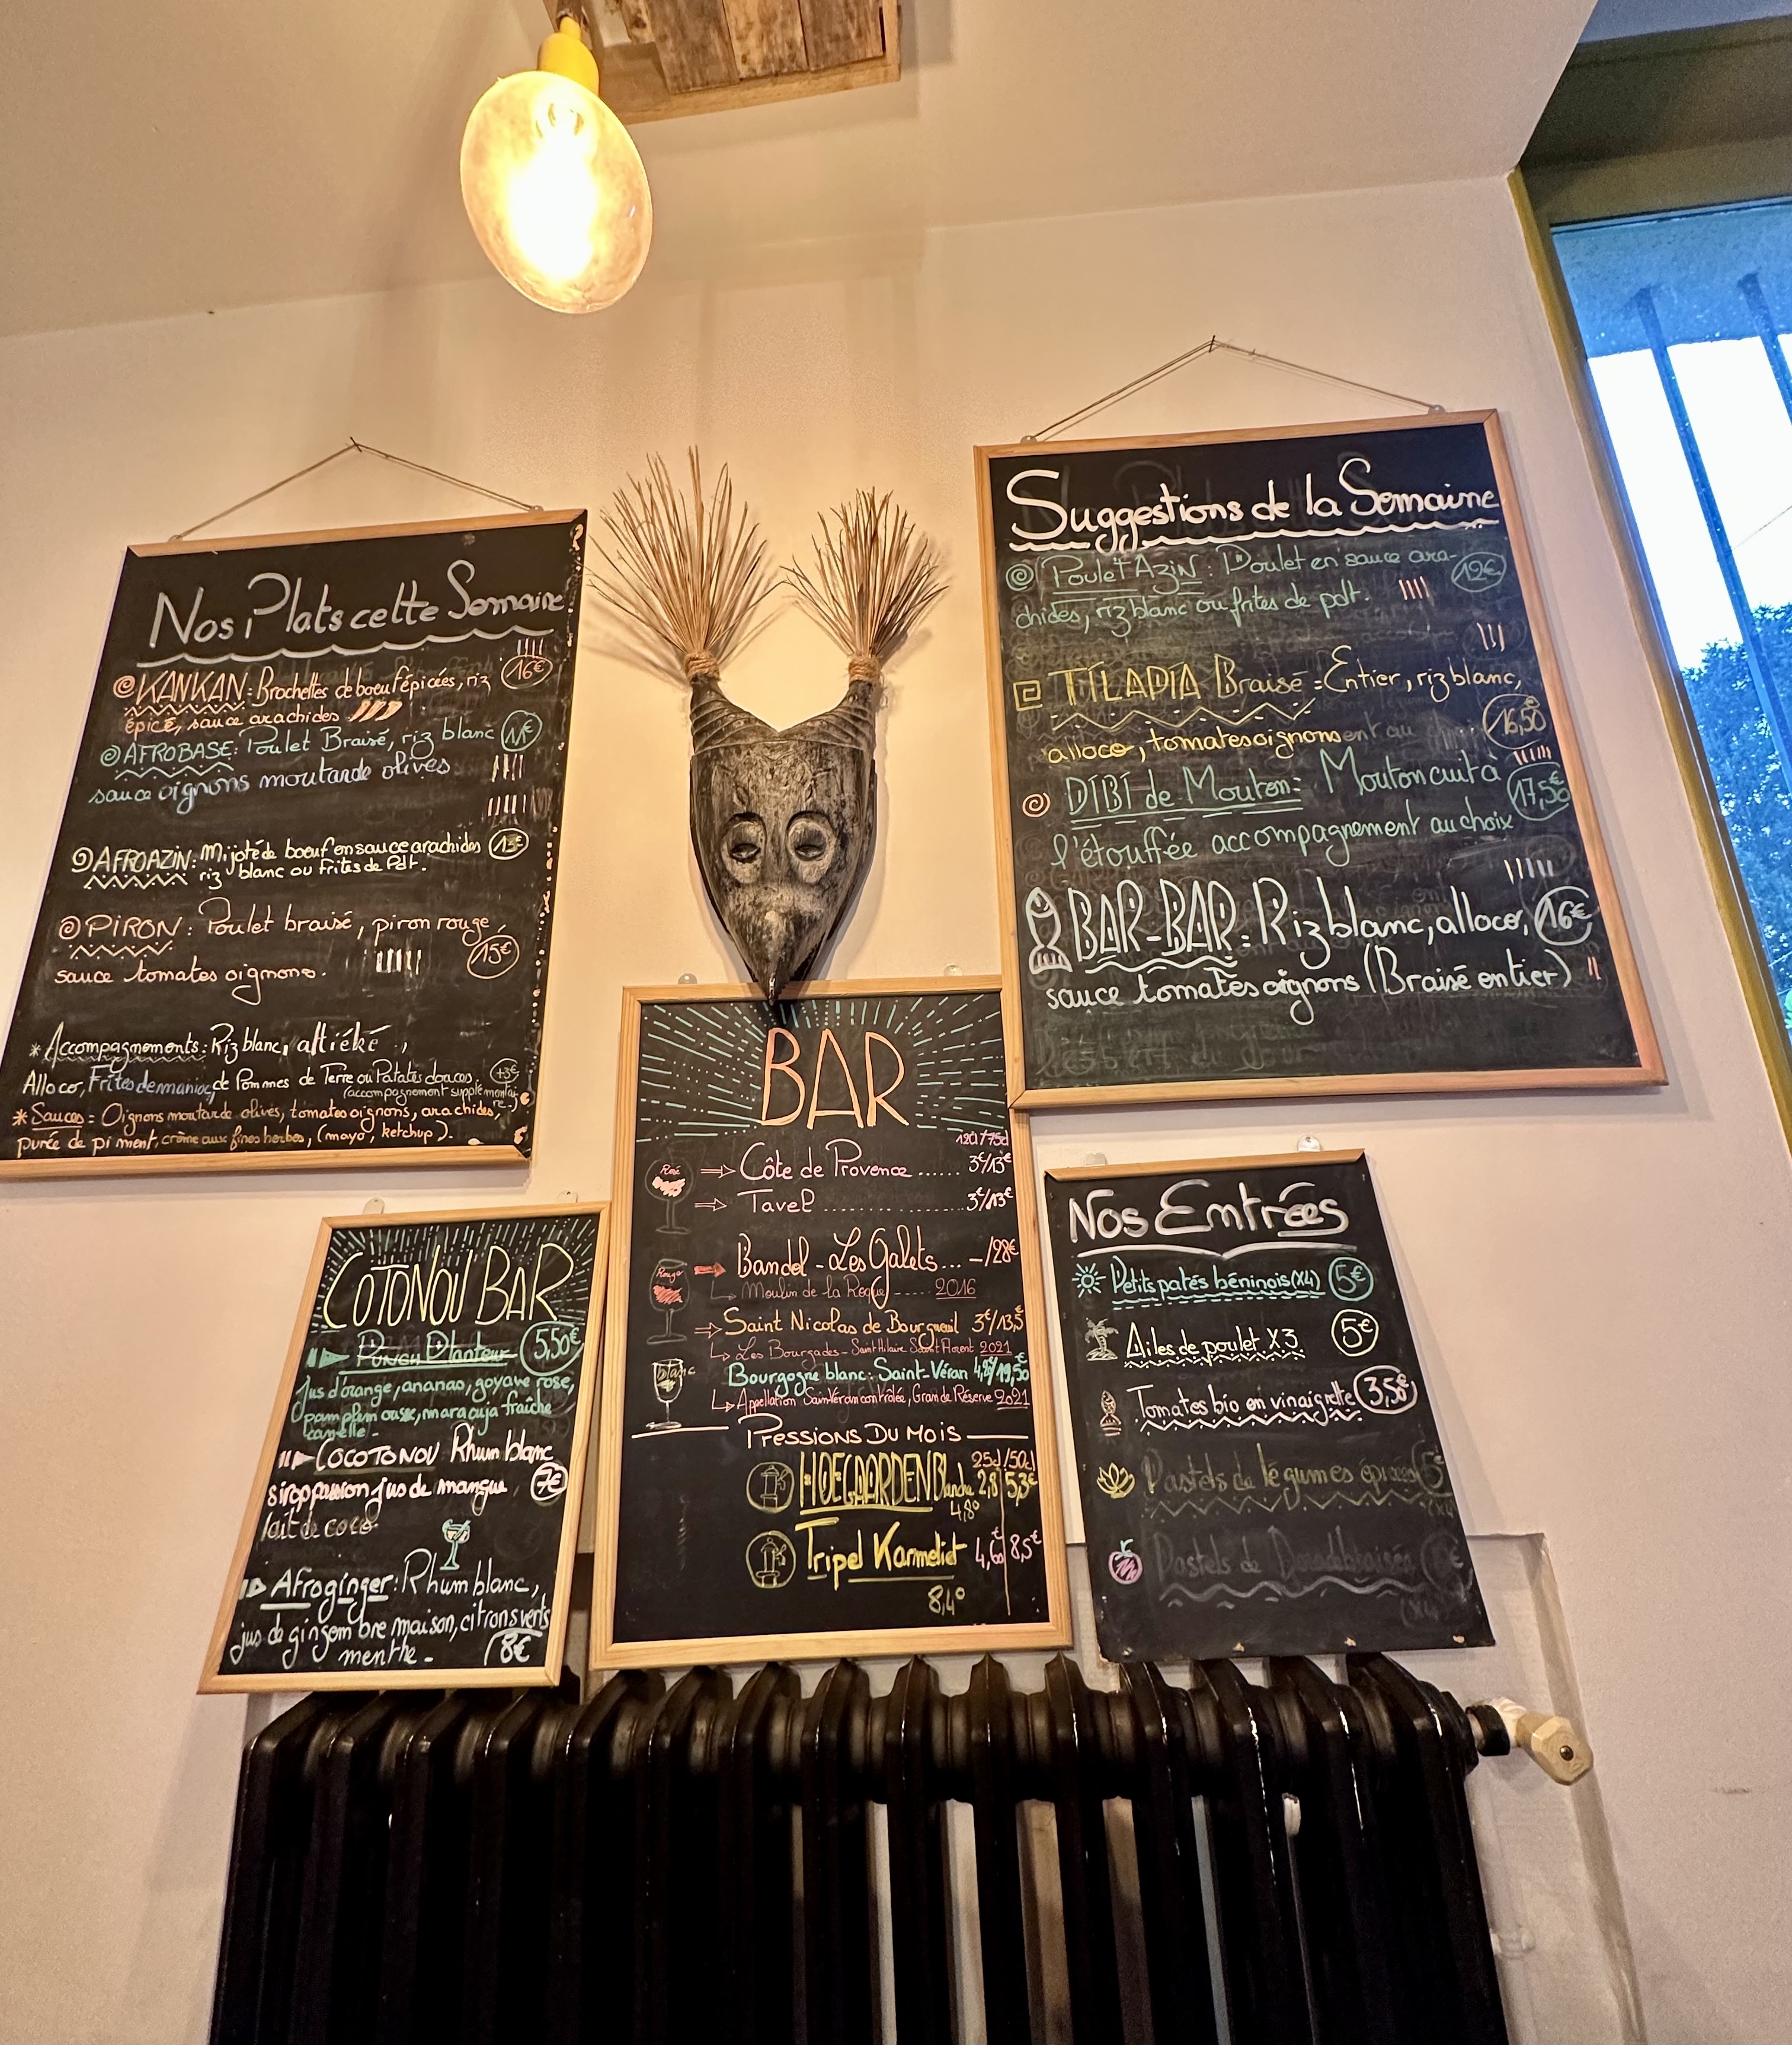 Nos Plats cette Semaine
KANKAN: Brochettes de boeuf épicées, riz 16€
épicé, sauce arachides
AFROBASE: Poulet Braisé, riz blanc
sauce oignons moutarde olives
AFROAZIN: Mijoté de boeuf en sauce arachides 13€
riz blanc ou Frites de Pdt.
PIRON: Poulet braisé, piron rouge,
sauce tomates oignons. 15€
* Accompagnements: Riz blanc, attiéké,
Alloco, Frites de manioc, de Pommes de Terre ou Patates douces. +3€
(accompagnement supplémentai-
re..)
* Sauces: Oignons moutarde olives, tomates oignons, arachides,
purée de piment, crème aux fines herbes, (mayo, ketchup).
Suggestions de la Semaine
Poulet Azin: Poulet en sauce ara- 12€
chides, riz blanc ou frites de pdt.
TILAPIA Braisé: Entier, riz blanc,
alloco, tomates oignons 16,50€
DIBI de Mouton: Mouton cuit à
l'étouffée accompagnement au choix 17,50€
BAR-BAR: Riz blanc, alloco, 16€
sauce tomates oignons (Braisé entier)
BAR
12cl/75cl
Rosé
Côte de Provence...... 3€/13€
Tavel................ 3€/13€
Rouge
Bandol - Les Galets... -/28€
Moulin de la Roque ----- 2016
Saint Nicolas de Bourgueil 3€/13,5€
Les Bourgades - Saint Hilaire Saint Florent 2021
blanc
Bourgogne blanc: Saint-Véran 4,5€/19,50€
Appellation Saint Véran contrôlée, Grande Réserve 2021
Pressions Du Mois
25cl/50cl
HOEGAARDEN Blanche 2,8 5,3€
4,8°
Tripel Karmeliet 4,60€ 8,5€
8,4°
COTONOU BAR
Punch Planteur 5,50€
Jus d'orange, ananas, goyave rose,
pamplemousse, maracuja fraîche
canelle.
COCOTONOU Rhum blanc
sirop passion jus de mangue, 7€
lait de coco.
Afroginger: Rhum blanc,
jus de gingembre maison, citrons verts
menthe. 8€
Nos Entrées
Petits patés béninois (X4) 5€
Ailes de poulet X3 5€
Tomates bio en vinaigrette 3,50€
Pastels de légumes épicées 5€
(X4)
Pastels de